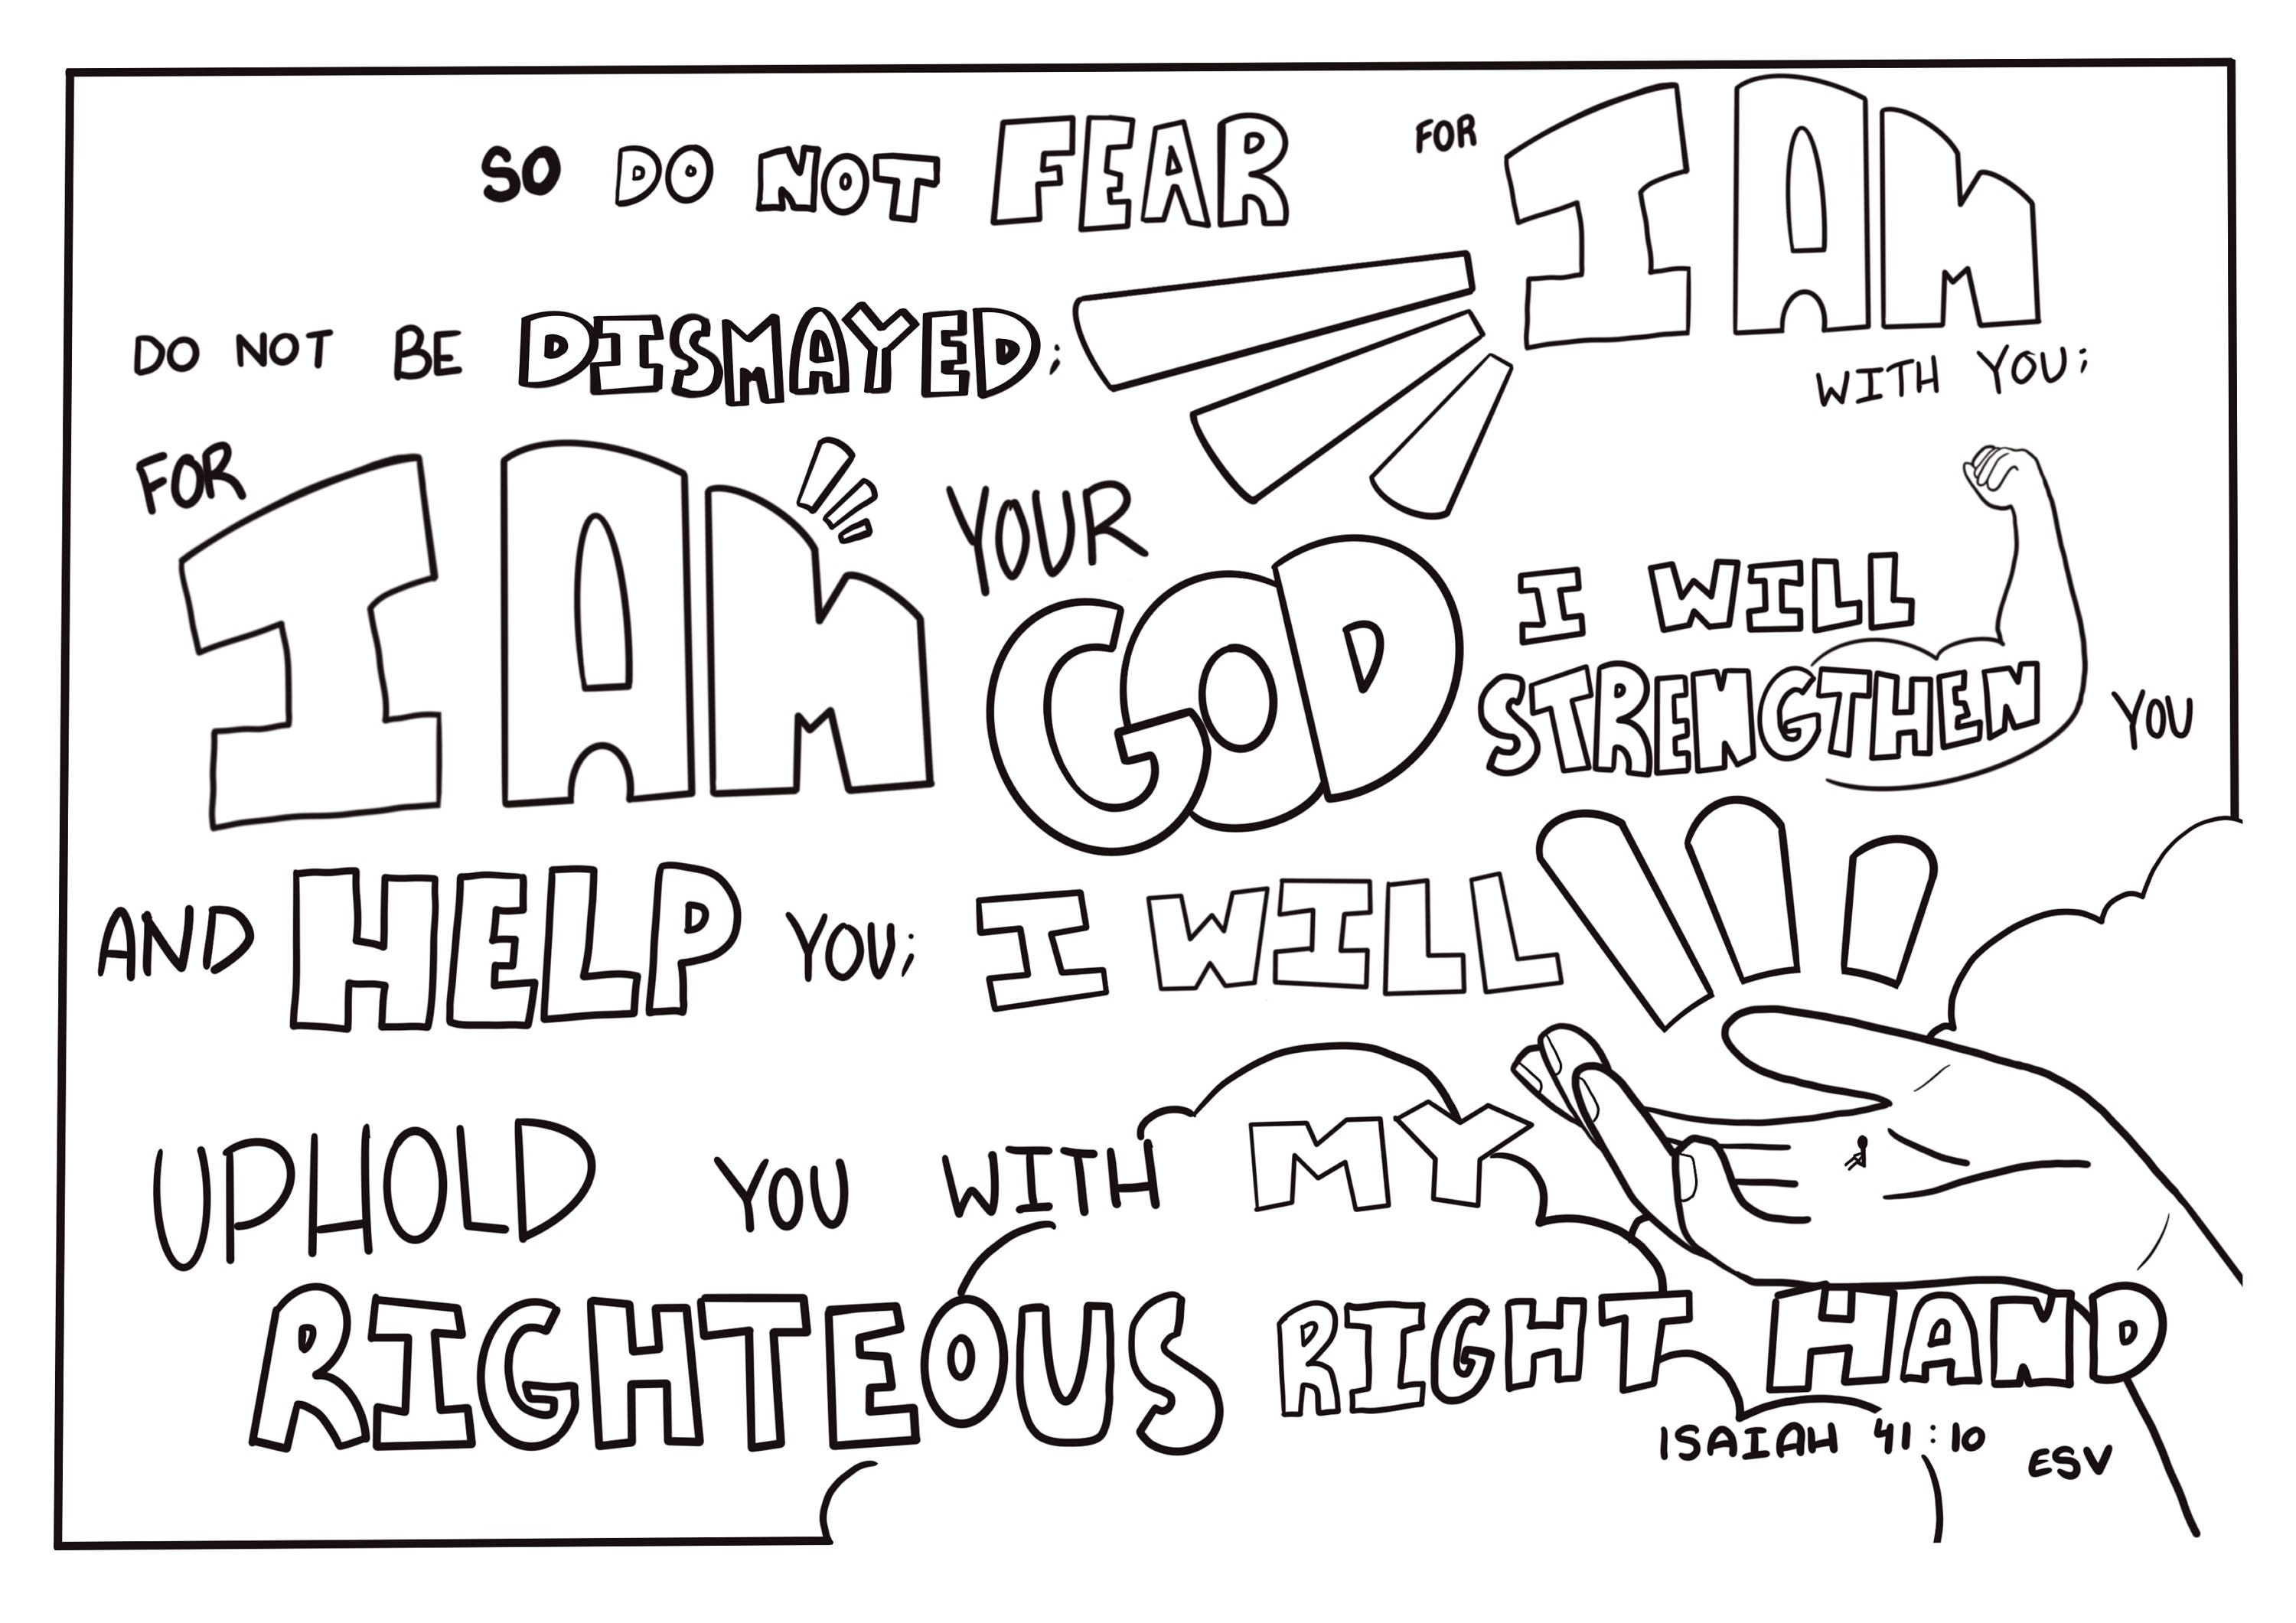 SO DO NOT FEAR FOR I AM
WITH YOU;
DO NOT BE DISMAYED;
FOR I AM YOUR GOD
I WILL
STRENGTHEN YOU
AND HELP YOU; I WILL
UPHOLD YOU WITH MY
RIGHTEOUS RIGHT HAND
ISAIAH 41:10 ESV